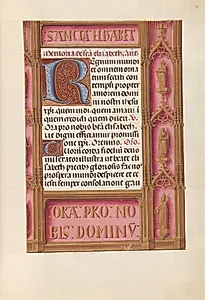 SANCTA ELISABET
De domina sancta elizabeth, Ant.
Regnum mundi
et omnem orna
tum seculi con
tempsi propter
amorem domi
ni nostri ihesu
xpi quem vidi quem amavi i
quem credidi quem dilexi. V.
Ora pro nobis bta elizabeth.
Ut digni efficiamur promissi
one xpi. Oremus. Oro.
Tuorum corda fidelium deus
miserator illustra et beate eli
sabeth precibus gloriosis fac nos
prospera mundi despicere et ce
lesti semper consolatione gau
ORA PRO NO
BIS DOMINU